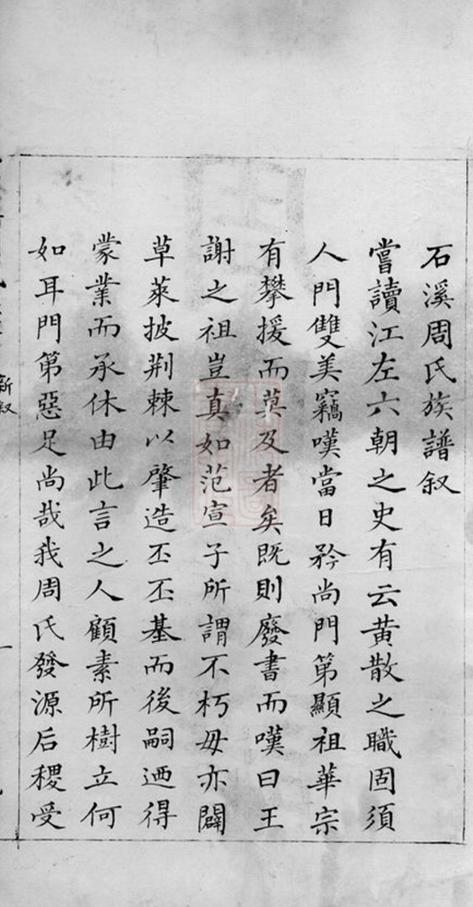 石溪周氏族譜叙
嘗讀江左六朝之史有云黄散之職固須
人門雙美竊嘆當日矜尚門第顯祖華宗
有攀援而莫及者矣既則廢書而嘆曰王
謝之祖豈真如范宣子所謂不朽毋亦闢
草萊披荆棘以肇造丕丕基而後嗣迺得
蒙業而承休由此言之人顧素所樹立何
如耳門第惡足尚哉我周氏發源后稷受
新叙
一